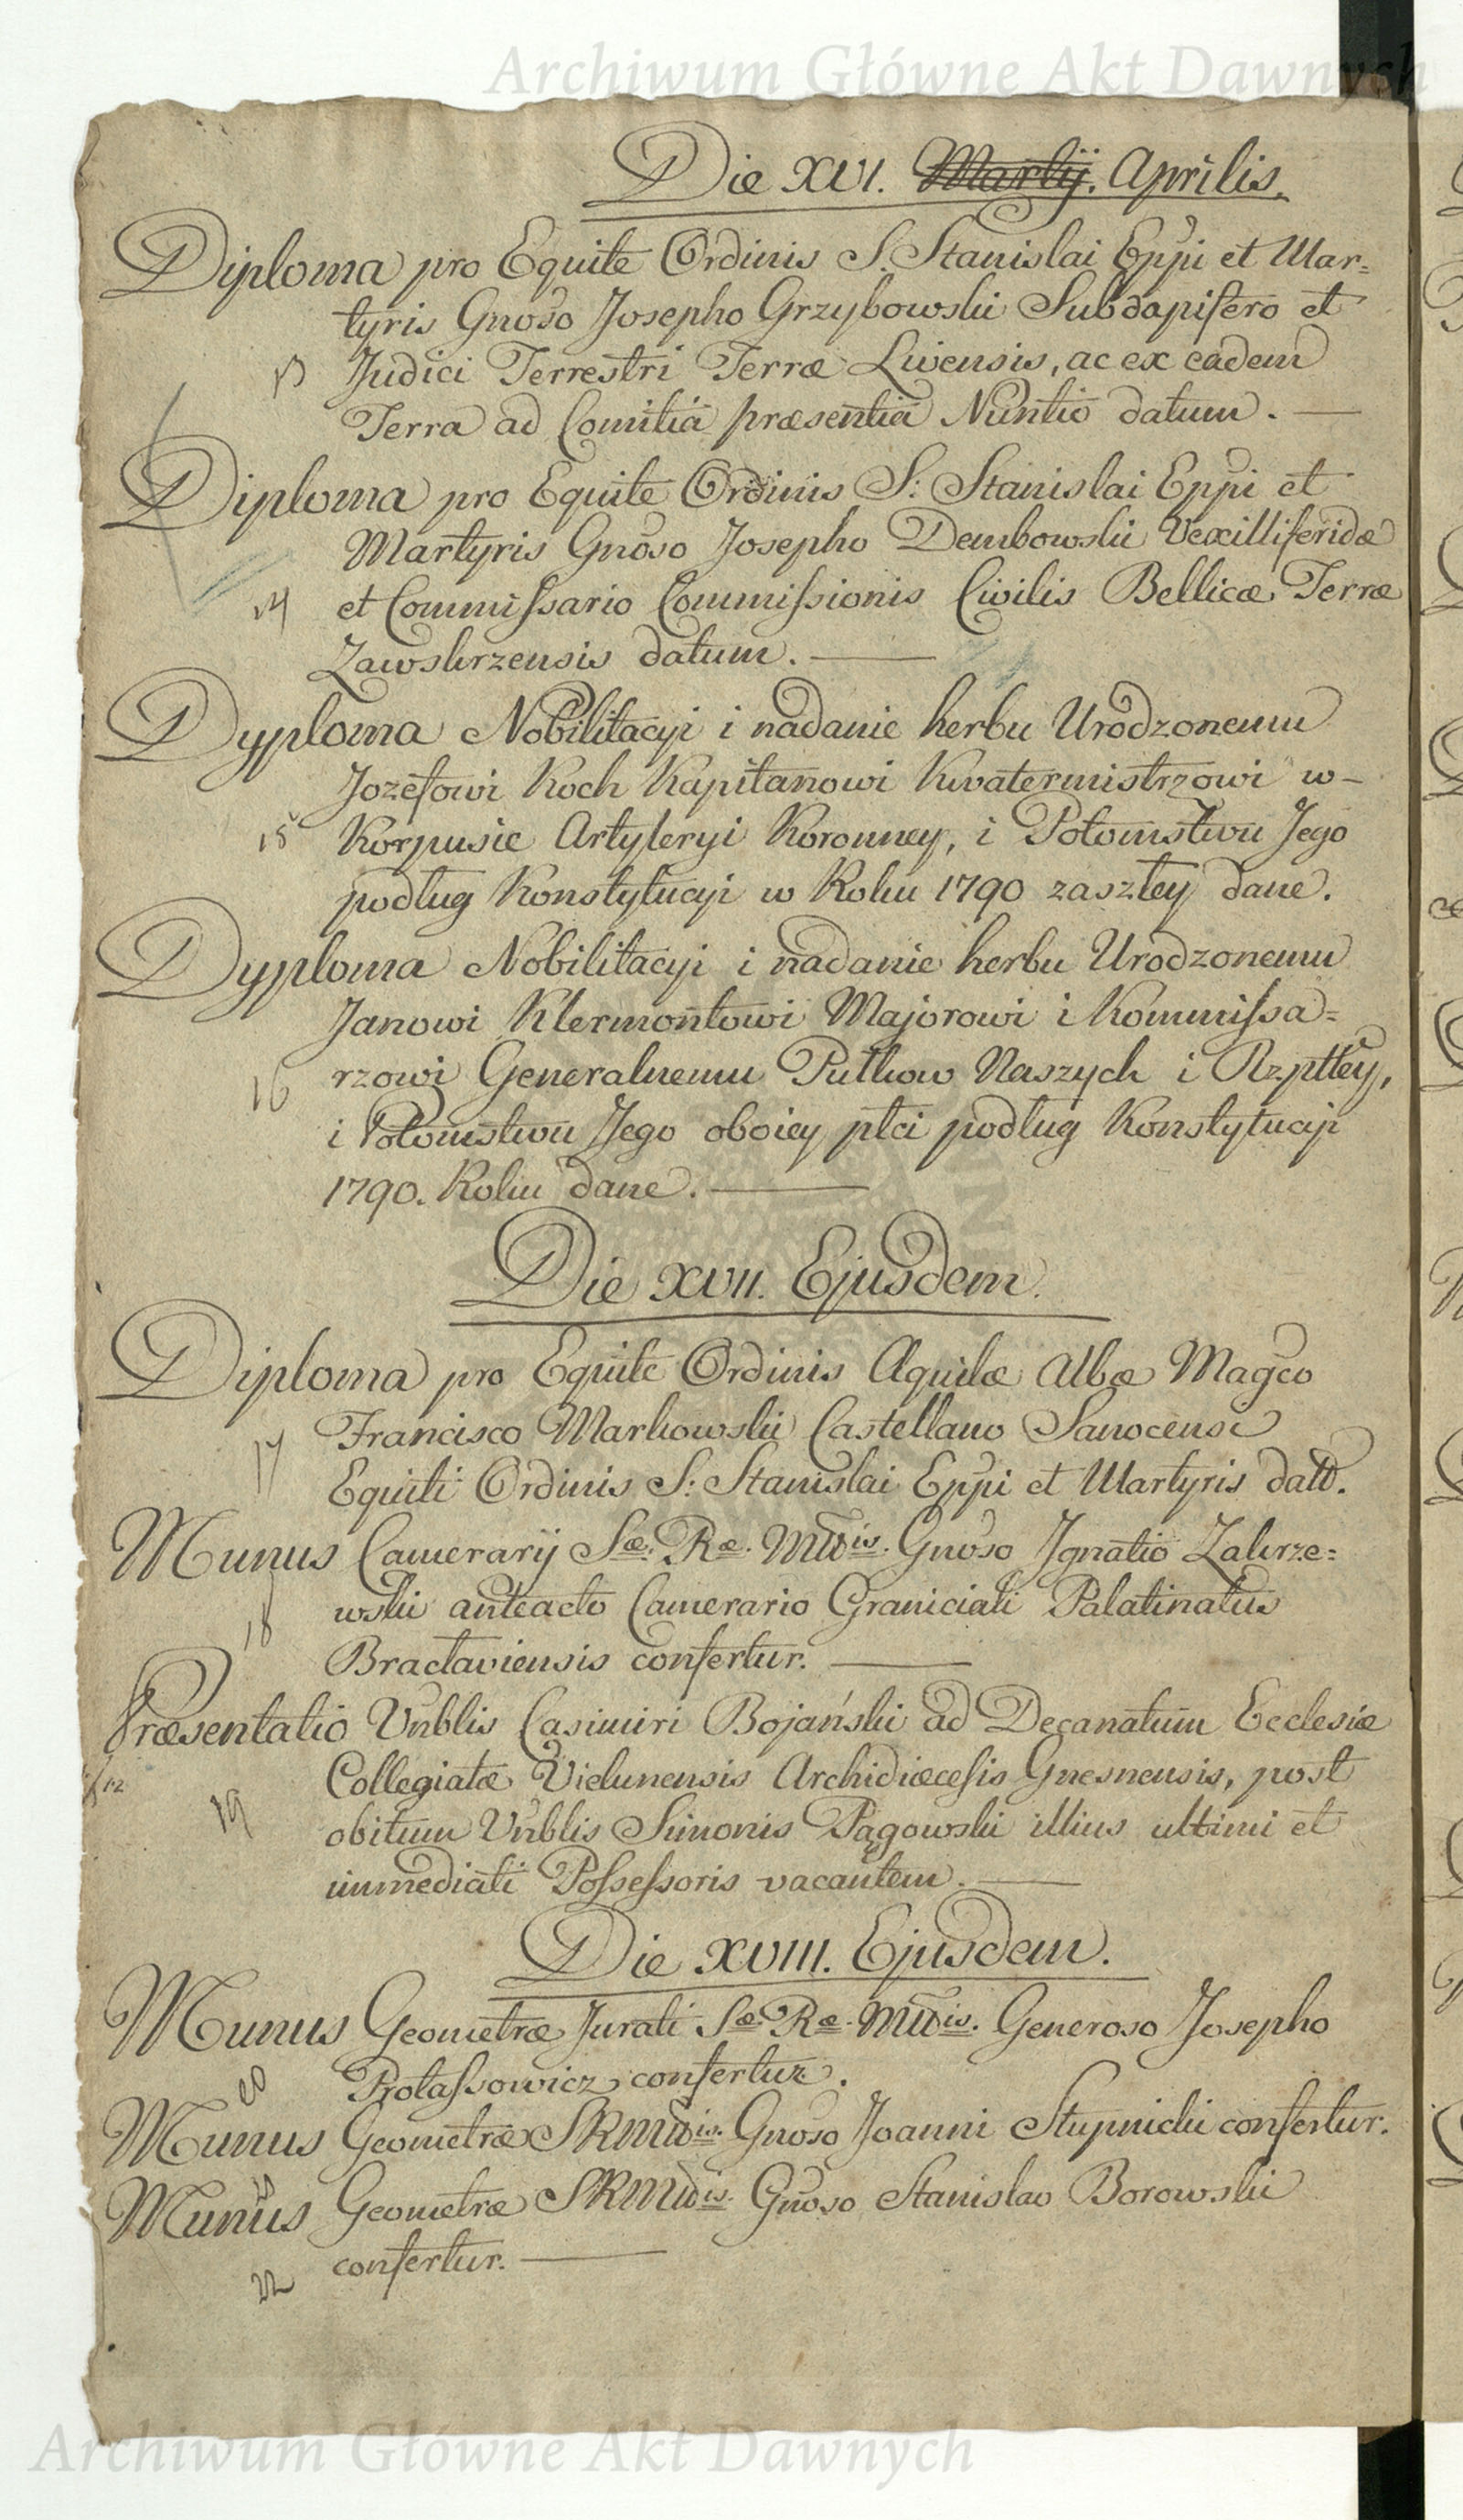 Archiwum Główne Akt Dawnych
Die XVI. Martij. Aprilis.
Diploma pro Equite Ordinis S. Stanislai Eppi et Mar=
tyris Gnoso Josepho Grzybowski Subdapifero et
13 Judici Terrestri Terræ Livensis, ac ex eadem
Terra ad Comitia præsentia Nuntio datum. —
Diploma pro Equite Ordinis S: Stanislai Eppi et
Martyris Gnoso Josepho Dembowski Vexilliferidæ
14 et Commissario Commissionis Civilis Bellicæ Terræ
Zawskrzensis datum. —
Dyploma Nobilitacyi i nadanie herbu Urodzonemu
Jozefowi Koch Kapitanowi Kwatermistrzowi w-
15 Korpusie Artyleryi Koronney, i Potomstwu Jego
podług Konstytucyi w Roku 1790 zaszłey dane.
Dyploma Nobilitacyi i nadanie herbu Urodzonemu
Janowi Klermontowi Majorowi i Kommissa=
16 rzowi Generalnemu Pułkow Naszych i Rzpltey,
i Potomstwu Jego oboiey płci podług Konstytucyi
1790. Roku dane. —
Die XVII. Ejusdem.
Diploma pro Equite Ordinis Aquilæ Albæ Magco
17 Francisco Markowski Castellano Sanocensi
Equiti Ordinis S: Stanislai Eppi et Martyris datt.
Munus Camerarij Sæ. Ræ. Mttis. Gnoso Ignatio Zakrze=
wski anteacto Camerario Graniciali Palatinatus
18 Bractaviensis confertur. —
Præsentatio Vnblis Casimiri Bojański ad Decanatum Ecclesiæ
Collegiatæ Vielunensis Archidiæcesis Gnesnensis, post
19 obitum Vnblis Simonis Pągowski illius ultimi et
immediati Possessoris vacantem. —
Die XVIII. Ejusdem.
Munus Geometræ Jurati Sæ. Ræ. Mttis. Generoso Josepho
20 Protassowicz confertur.
Munus Geometræ SRMttis. Gnoso Joanni Stupnicki confertur.
Munus Geometræ SRMttis. Gnoso Stanislao Borowski
22 confertur. —
Archiwum Główne Akt Dawnych